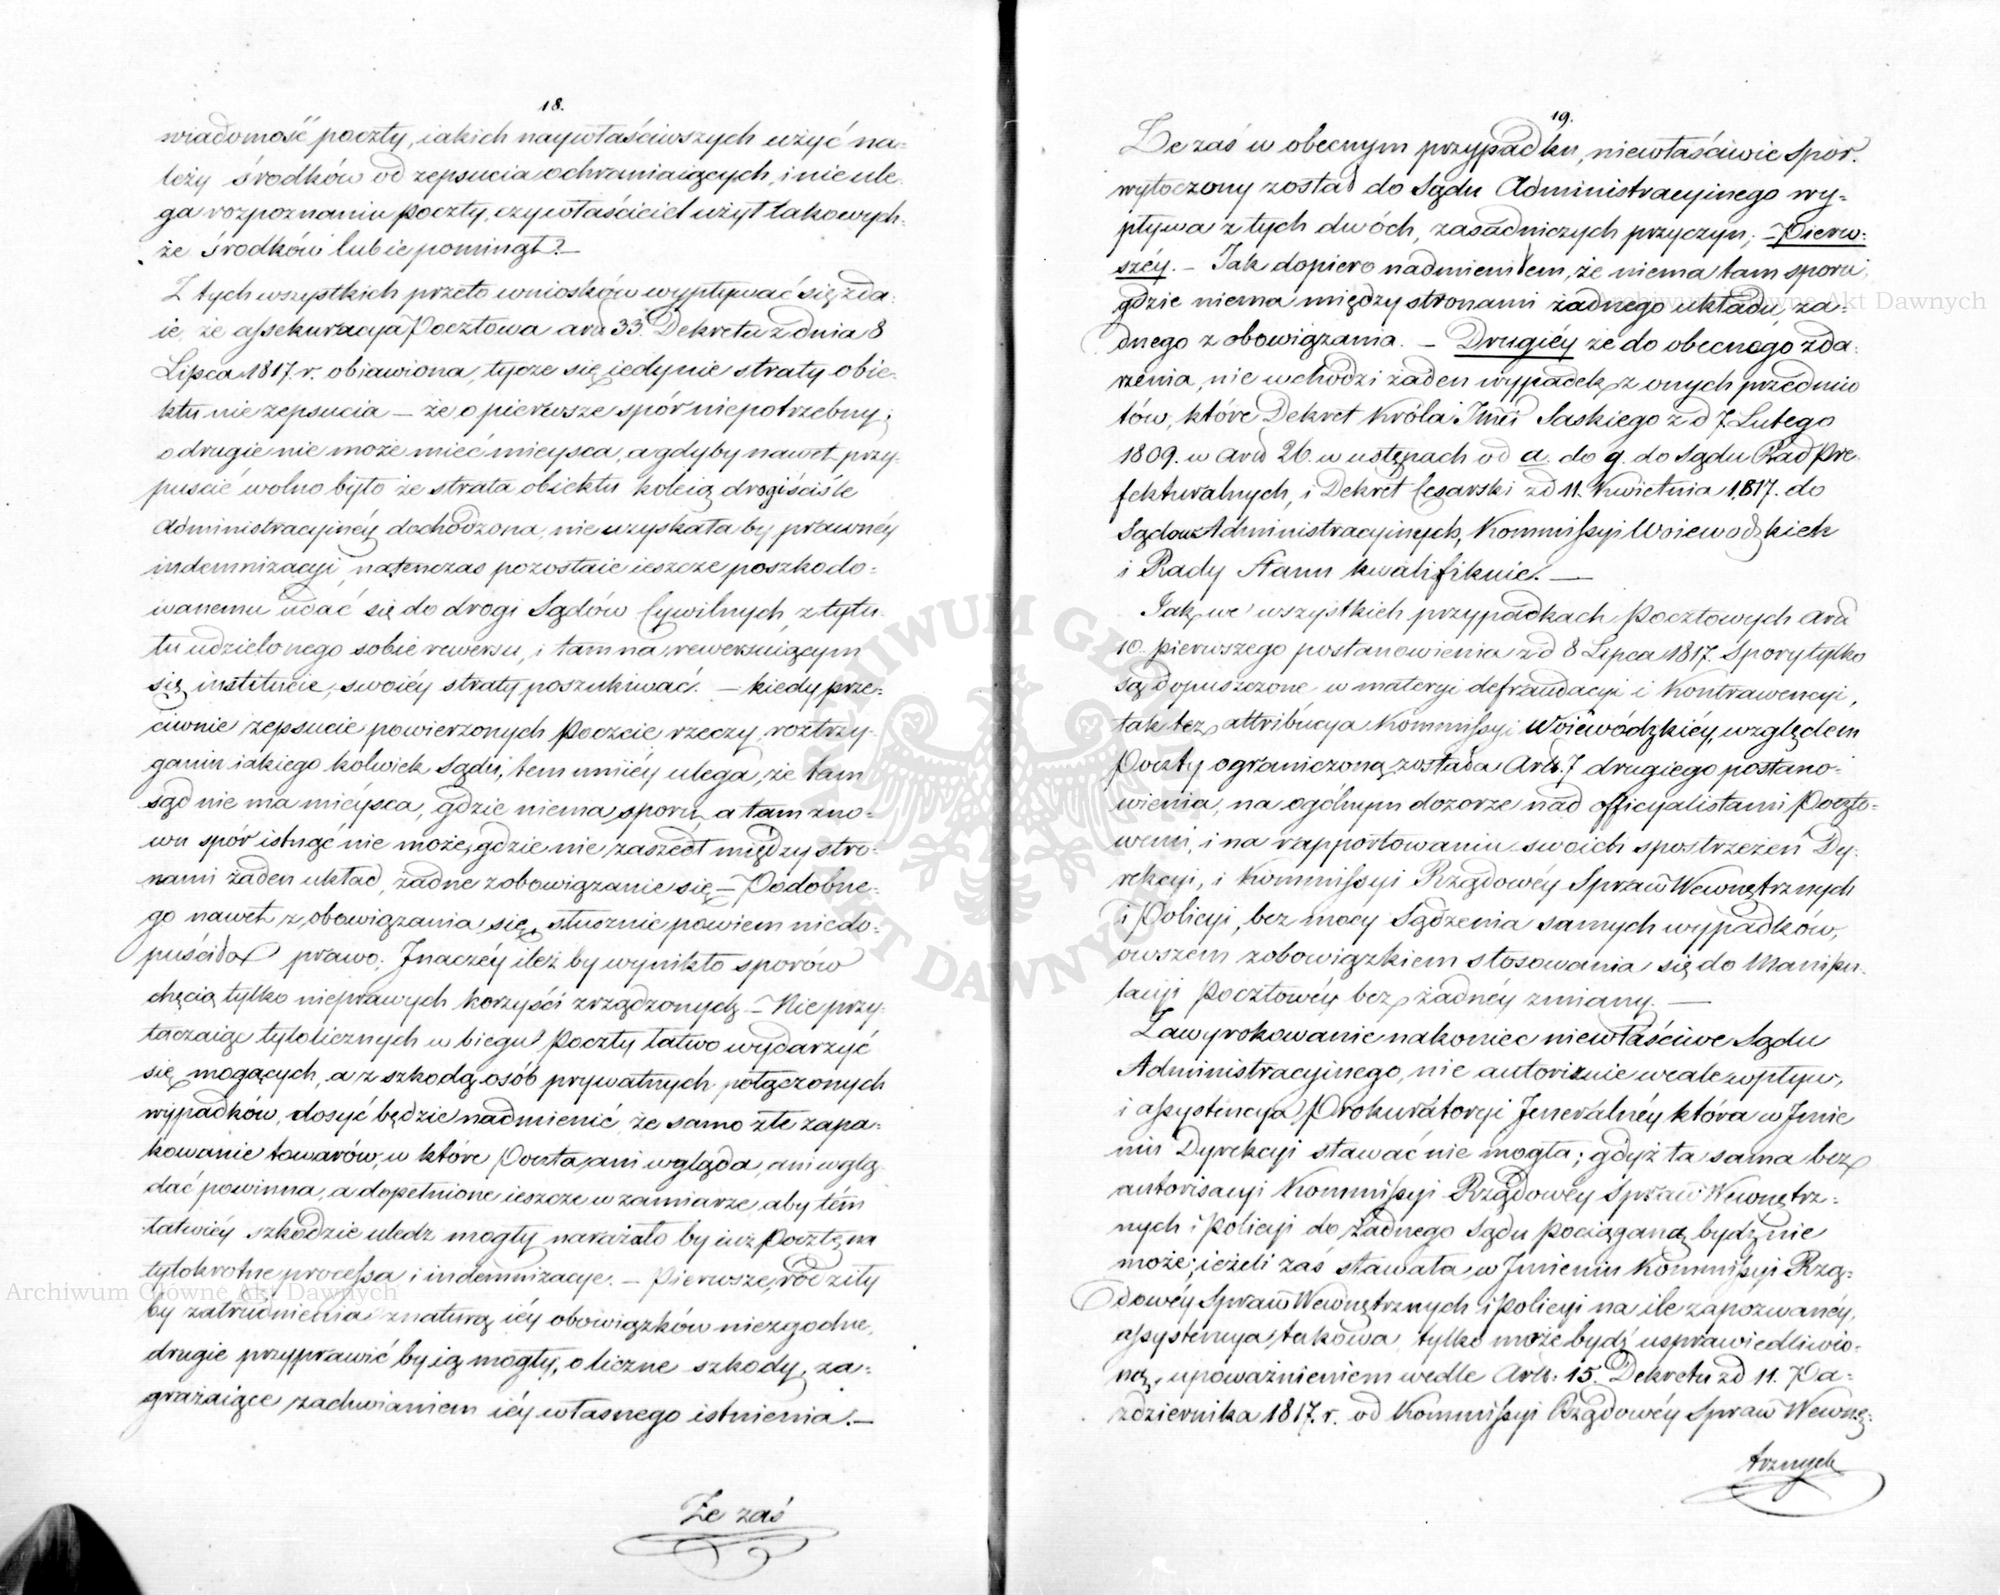 18.
wiadomość poczty, iakich naywłaściwszych użyć na-
leży środków od zepsucia ochraniaiących, i nie ule-
ga rozpoznaniu Poczty, czy właściciel użył takowych-
że środków lub ie pominął? —
Z tych wszystkich przeto wniosków wypływać się zda-
ie, że assekuracya Pocztowa artt 33. Dekretu z dnia 8
Lipca 1817. r. obiawiona, tycze się iedynie straty obie-
ktu nie zepsucia — że o pierwsze spór niepotrzebny;
o drugie nie może mieć mieysca, a gdyby nawet przy-
puścić wolno było że strata obiektu koleią drogi ściśle
Administracyinéy dochodzona, nie uzyskała by prawnéy
indemnizacyi, natenczas pozostaie ieszcze poszkodo-
wanemu udać się do drogi Sądów Cywilnych, z tytu-
łu udzielonego sobie rewersu, i tam na rewersuiącym
się instytucie, swoiéy straty poszukiwać. — kiedy prze-
ciwnie zepsucie powierzonych Poczcie rzeczy, roztrzy-
ganiu iakiego kolwiek Sądu, tem mniéy ulega, że tam
sąd nie ma mieysca, gdzie niema sporu, a tam zno-
wu spór istnąć nie może, gdzie nie zaszedł między stro-
nami żaden układ, żadne zobowiązanie się — Podobne-
go nawet zobowiązania się, słusznie powiem niedo-
puściło prawo; Jnaczéy ileż by wynikło sporów
chęcią tylko nieprawych korzyści zrządzonych — Nie przy-
taczaiąc tylolicznych w biegu Poczty łatwo wydarzyć
się mogących, a z szkodą osób prywatnych połączonych
wypadków, dosyć będzie nadmienić że samo złe zapa-
kowanie towarów, w które Poczta ani wgląda, ani wglą-
dać powinna, a dopełnione ieszcze w zamiarze, aby tém
łatwiéy szkodzie uledz mogły narażało by iuż Pocztę na
tylokrotne processa i indemnizacye. — Pierwsze, rodziły
by zatrudnienia z naturą iéy obowiązków niezgodne,
drugie przyprawić by ią mogły, o liczne szkody, za-
grażaiące zachwianiem iéy własnego istnienia. —
Że zaś
19.
Że zaś w obecnym przypadku, niewłaściwie spór
wytoczony został do Sądu Administracyinego wy-
pływa z tych dwóch, zasadniczych przyczyn; — Pierw-
széy. — Jak dopiero nadmieniłem, że niema tam sporu,
gdzie niema między stronami żadnego układu, ża-
dnego zobowiązania. — Drugiéy że do obecnego zda-
rzenia, nie wchodzi żaden wypadek z onych przedmio
tów, które Dekret Króla Jmci Saskiego z d 7. Lutego
1809. w artt 26. w ustępach od a. do g. do Sądu Rad Pre-
fekturalnych, i Dekret Cesarski z d 11. Kwietnia 1817. do
Sądow Administracyinych, Kommissyi Woiewodzkich
i Rady Stanu kwalifikuie. —
Jak we wszystkich przypadkach Pocztowych artt
10. pierwszego postanowienia z d 8 Lipca 1817. Spory tylko
są dopuszczone w materyi defraudacyi i Kontrawencyi,
tak też attribucya Kommissyi Woiewódzkiéy, względem
Poczty ograniczoną została Artt. 7 drugiego postano-
wienia, na ogólnym dozorze nad officyalistami Poczto-
wemi, i na rapportowaniu swoich spostrzeżeń Dy-
rekcyi, i Kommissyi Rządowéy Spraw Wewnętrznych
i Policyi, bez mocy Sądzenia samych wypadków,
owszem z obowiązkiem stosowania się do Manipu-
lacyi Pocztowéy bez żadnéy zmiany. —
Zawyrokowanie nakoniec niewłaściwe Sądu
Administracyinego, nie autorizuie wcale wpływ,
i assystencya Prokuratoryi Jeneralnéy która w Jmie
niu Dyrekcyi stawać nie mogła; gdyż ta sama bez
autorisacyi Kommissyi Rządowéy Spraw Wewnętrz-
nych i Policyi do żadnego Sądu pociąganą bydź nie
może; ieżeli zaś stawała w Jmieniu Kommissyi Rzą-
dowéy Spraw Wewnętrznych i Policyi na ile zapozwanéy,
assystencya takowa, tylko może bydź usprawiedliwio-
ną, upoważnieniem wedle Artt. 15. Dekretu z d 11. Pa-
zdziernika 1817. r. od Kommissyi Rządowéy Spraw Wewnę-
trznych
Archiwum Główne Akt Dawnych
Archiwum Główne Akt Dawnych
ARCHIWUM GŁÓWNE AKT DAWNYCH